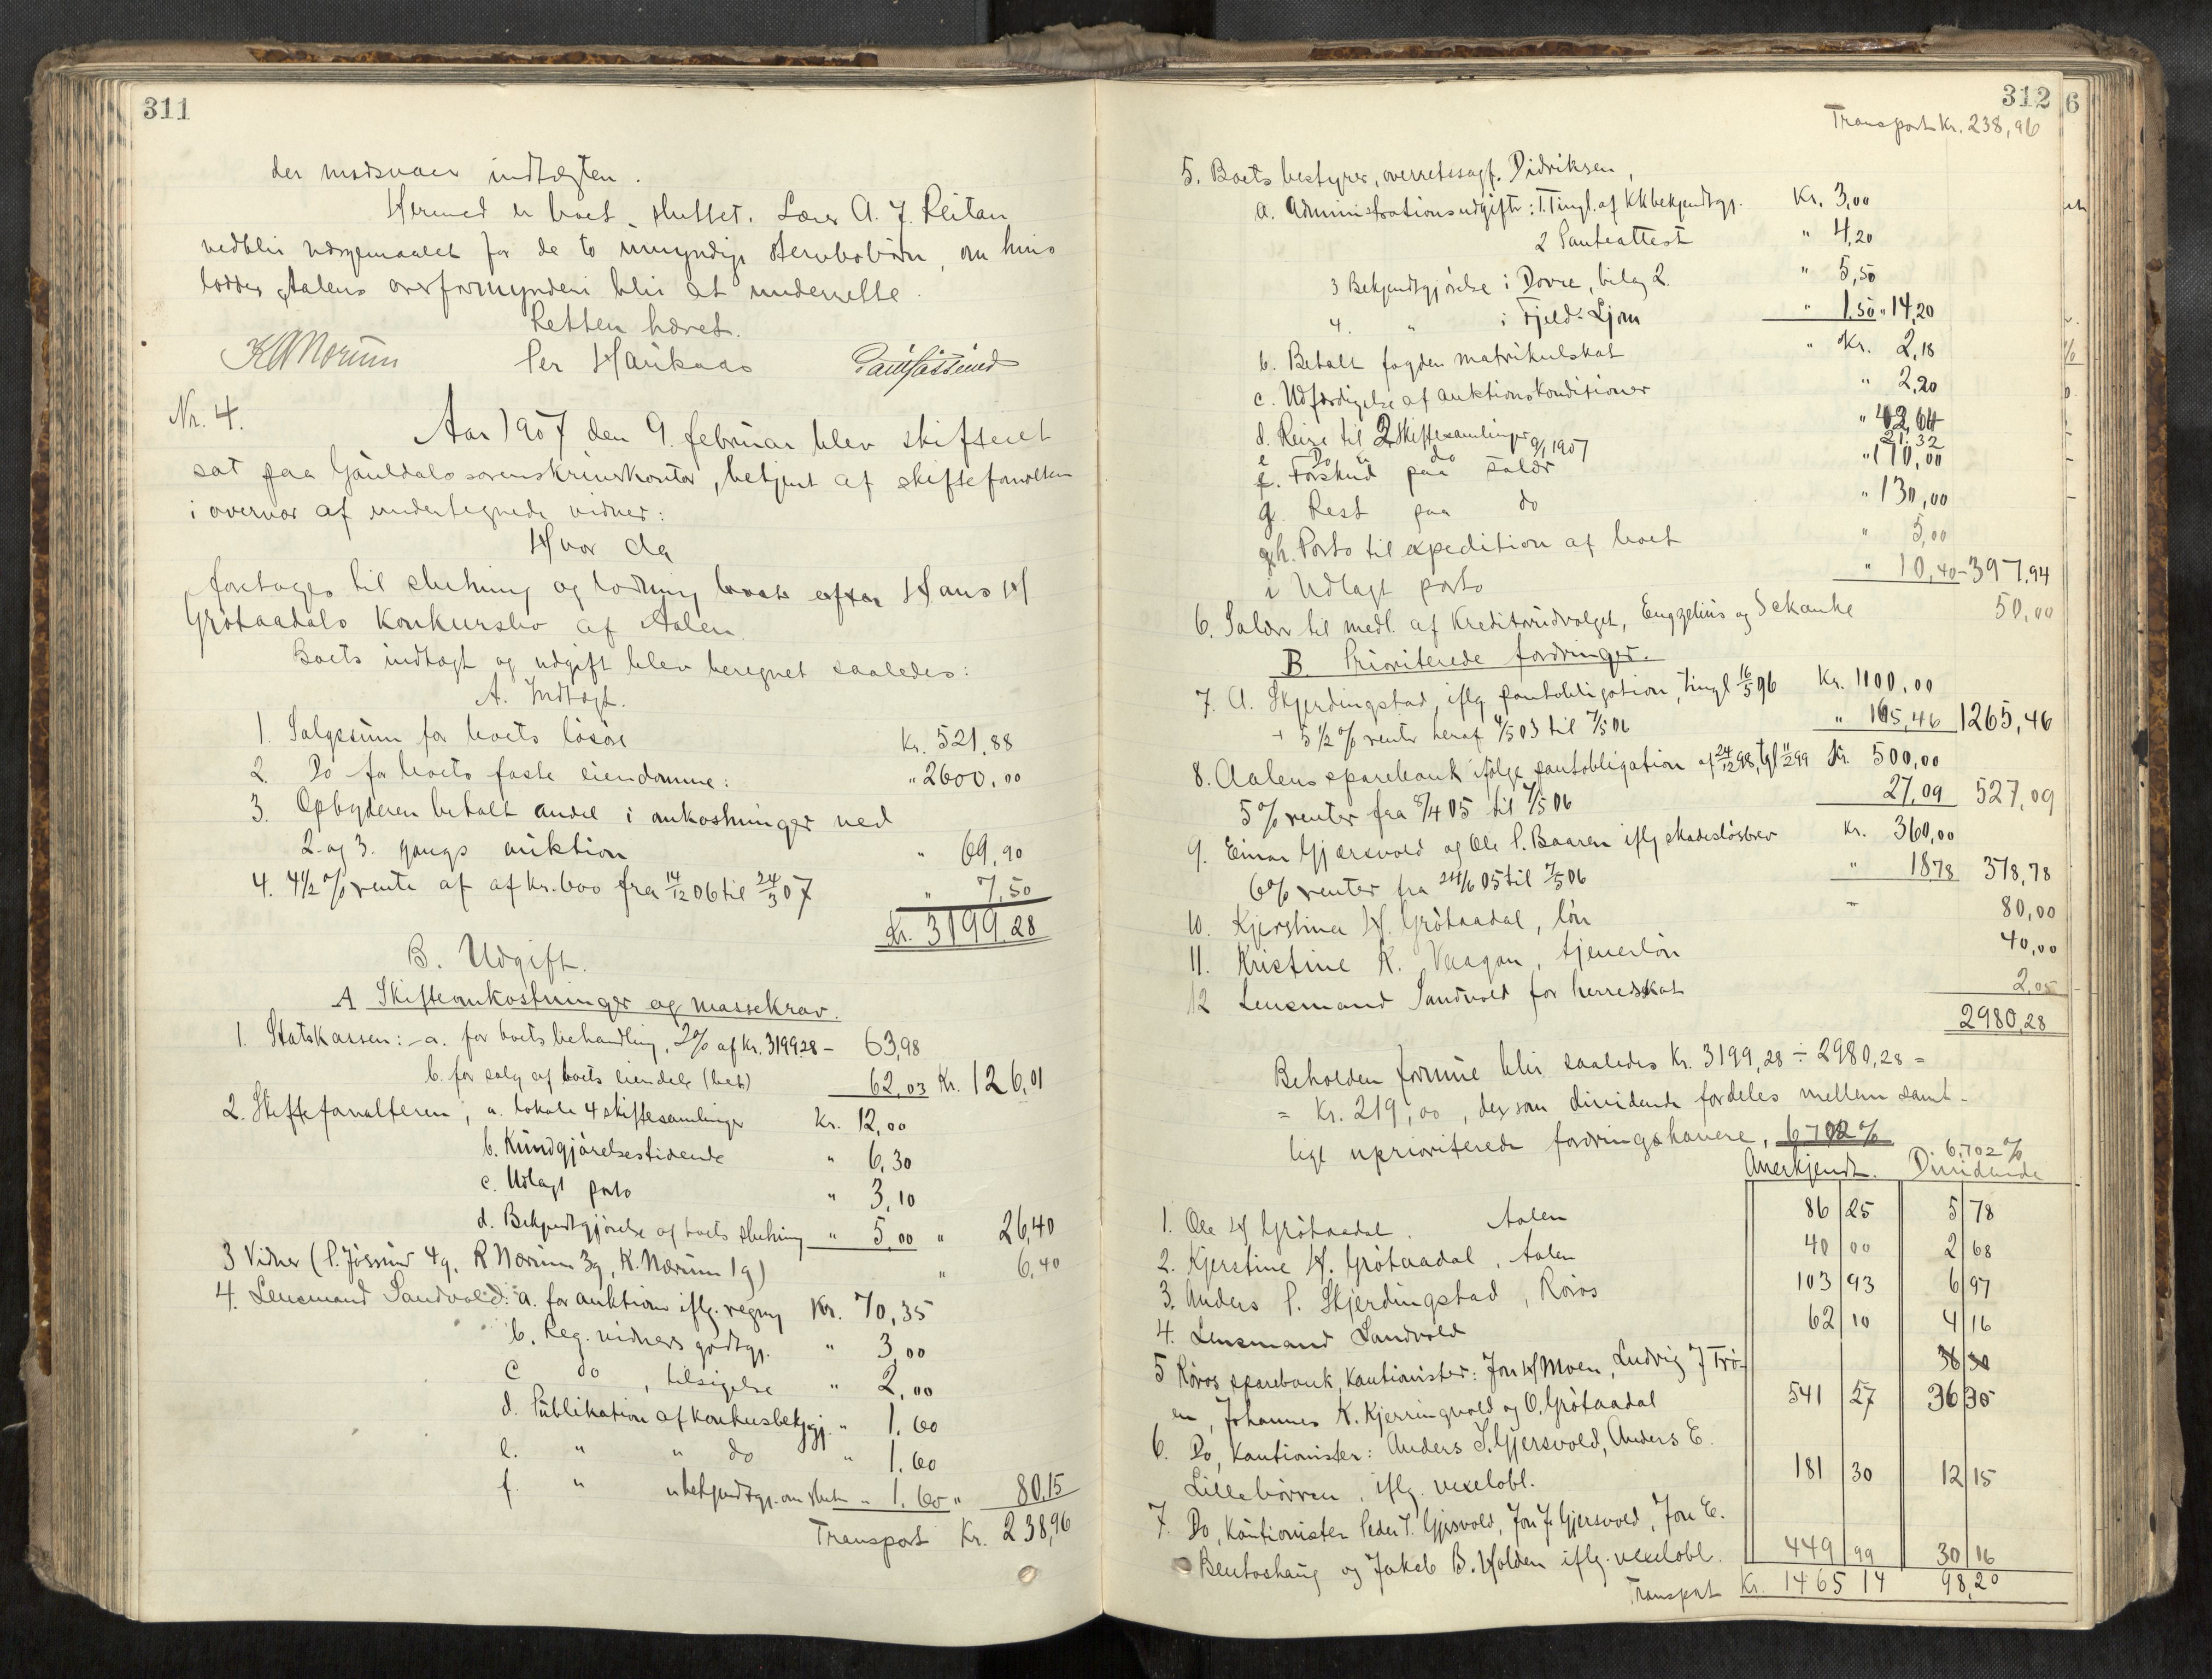 311
der modsvaer indtægten.
Hermed er boet sluttet. Lærer A. J. Reitan
vedblir værgemaalet for de to umyndige stervbobørn, om hvis
lodder Aalens overformynderi blir at underrette.
Retten hævet.
K A Nørum Per Haukaas
Nr. 4.
Aar 1907 den 9. februar blev skifteret
sat paa Gauldals sorenskriverkontor, betjent af skifteforvalteren
i overvær af undertegnede vidner:
Hvor da
foretoges til slutning og lodning boet efter Hans H
Grötaadals Konkursbo af Aalen.
Boets indtægt og udgift blev beregnet saaledes:
A. Indtægt.
1. Salgssum for boets lösöre Kr. 521,88
2. Do for boets faste eiendomme: " 2600,00
3. Opbyderen betalt andel i omkostninger ved
2. og 3. gangs auktion " 69,90
4. 4 1/2 % rente af af Kr. 600 fra 14/12 06 til 24/3 07 " 7,50
Kr. 3199,28
B. Udgift.
A Skifteomkostninger og massekrav.
1. Statskassen: a. for boets behandling, 2% af Kr. 3199.28 - 63,98
b. for salg af boets eiendele 62,03 Kr. 126,01
2. Skifteforvalteren, a. lokale 4 skiftesamlinger Kr. 12,00
b. Kundgjörelsestidende " 6,30
c. Udlagt porto " 3,10
d. Bekjendtgjörelse af boets slutning " 5,00 " 26,40
3 Vidner (P. Jössund 4g, R Nørum 3g, K. Nørum 1g) " 6,40
4. Lensmand Sandvold: a. for auktion iflg. regng Kr. 70,35
b. Reg. vidners godtgj. " 3,00
c do, tilsigelse " 2,00
d. Publikation af konkursbekjgj. " 1.60
e. " " do " 1.60
f. " bekjendtgj. om slutn " 1.60 " 80,15
Transport Kr. 238,96
312
6
Transport Kr. 238,96
5. Boets bestyrer, overretssagf. Didriksen,
a. Administrationsudgifter: 1. Tingl. af KKbekjendtgj. Kr. 3,00
2 Panteattest " 4,20
3 Bekjendtgjörelse i Dovre, bilag 2. " 5,50
4. " i Fjeld-Ljom " 1.50 " 14,20
b. Betalt fogden matrikulskat " Kr. 2,18
c. Udfærdigelse af auktionskonditioner " 2,20
d. Reise til 2 skiftesamlinger " 42,64
e Do do 9/1 1907 21.32
f. Forskud paa salær " 170,00
g. Rest paa do " 130,00
h. Porto til expedition af boet " 5,00
i Udlagt porto " 10,40 - 397,94
6. Salær til medl. af Kreditorudvalget, Engzelius og Sekanke 50,00
B Prioriterede fordringer.
7. A. Skjerdingstad, iflg pantobligation, tingl 16/5 96 Kr. 1100,00
+ 5 1/2 % renter heraf 4/5 03 til 7/5 06 " 165,46 1265,46
8. Aalens sparebank ifølge pantobligation af 24/12 98, tgl 11/2 99 Kr. 500,00
5% renter fra 8/4 05 til 7/5 06 27,09 527,09
9. Einar Gjersvold og Ole P. Baaren iflg skadeslösbrev Kr. 360,00
6% renter fra 24/6 05 til 7/5 06 " 18.78 378,78
10. Kjerstine H. Grötaadal, lön 80,00
11. Kristine K. Vaagan, tjenerlön 40,00
12 Lensmand Sandvold for herredskat 2,05
2980,28
Beholden formue blir saaledes Kr. 3199,28 ÷ 2980,28 =
= Kr. 219,00, der som dividende fordeles mellem samt-
lige uprioriterede fordringshavere, 6702%
Anerkjendt. 6,702% Dividende
1. Ole H Grötaadal. Aalen 86 25 5 78
2. Kjerstine H. Grötaadal, Aalen 40 00 2 68
3. Anders P. Skjerdingstad, Röros 103 93 6 97
4. Lensmand Sandvold 62 10 4 16
5 Röros sparebank, kautionister: Jon H Moen, Ludvig J Trö- 36 30
en, Johannes K. Kjerringvold og O. Grötaadal 541 27 36 30
6. Do, kautionister: Anders J. Gjersvold, Anders E.
Lillebörren, iflg. vexelobl. 181 30 12 15
7. Do, Kautionister Peder T. Gjersvold, Jon J. Gjersvold, Jon E.
Bentoshaug og Jakob B. Holden iflg. vexelobl. 449 99 30 16
Transport Kr. 1465 14 98,20